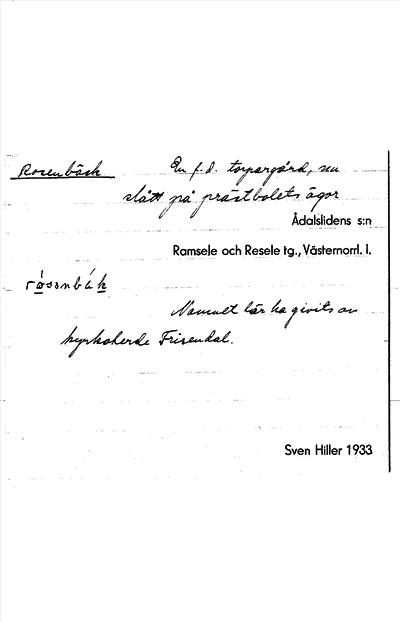 Rosenbäck En f.d. torpargård, nu
slått på prästbolets ägor
Ådalslidens s:n
Ramsele och Resele tg., Västernorrl. l.
Namnet lär ha givits av
kyrkoherde Frisendal.
Sven Hiller 1933